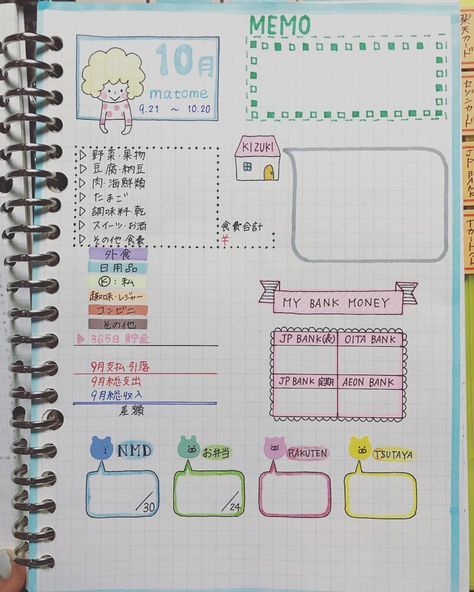 10月
matome
9.21 ~ 10.20
MEMO
▷ 野菜・果物
▷ 豆腐・納豆
▷ 肉・海鮮類
▷ たまご
▷ 調味料・乾
▷ スイーツ・お酒
▷ その他・食費
食費合計
¥
KIZUKI
外食
日用品
Ⓚ:私
趣味・レジャー
コンビニ
その他
▷365日貯金
9月支払 引落
9月総支出
9月総収入
差額
MY BANK MONEY
JP BANK(表) OITA BANK
JP BANK 定期 AEON BANK
NMD
お弁当
RAKUTEN
TSUTAYA
/30
/24
楽天カード
セゾンカード
JP BANK